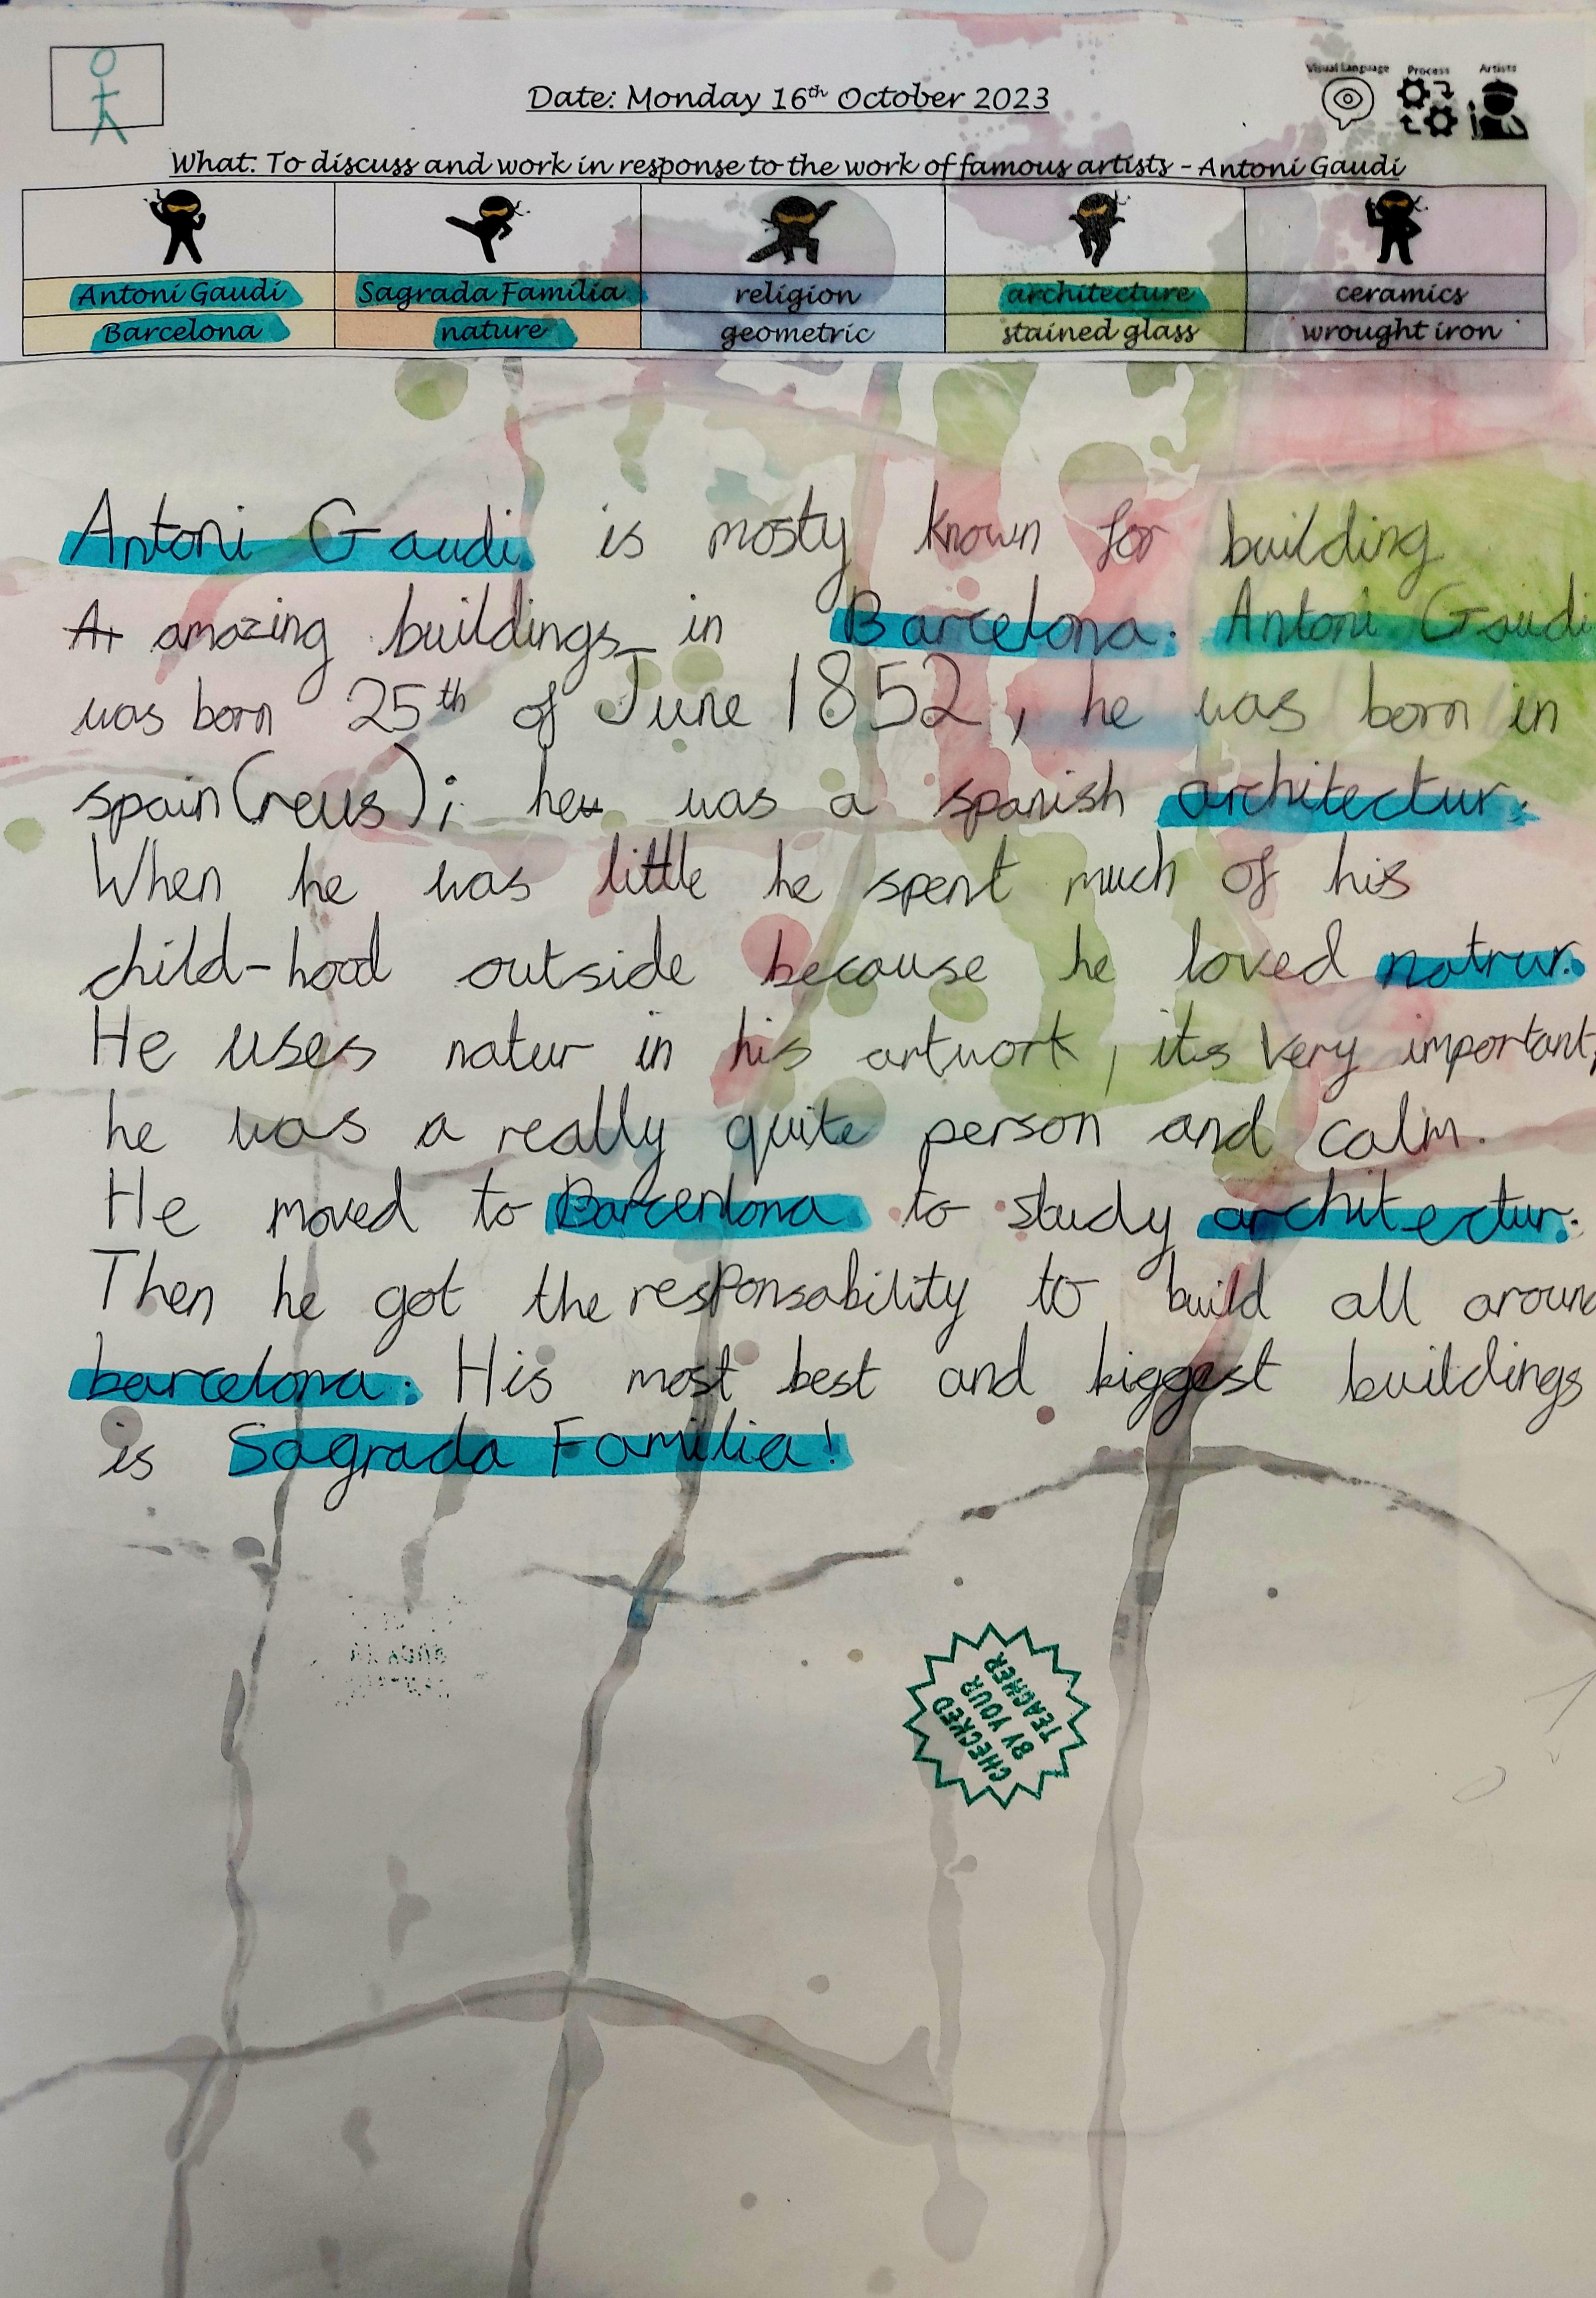 Visual Language Process Artists
Date: Monday 16th October 2023
What: To discuss and work in response to the work of famous artists - Antoni Gaudi
Antoni Gaudi Sagrada Familia religion architecture ceramics
Barcelona nature geometric stained glass wrought iron
Antoni Gaudi is mosty known for building
A amazing buildings in Barcelona. Antoni Gaudi
was born 25th of June 1852, he was born in
spain(reus); he was a spanish architectur.
When he was little he spent much of his
child-hood outside because he loved natrur.
He uses natur in his artwork, its very important,
he was a really quite person and calm.
He moved to Barcenlona to study architectur.
Then he got the responsability to build all around
barcelona. His most best and biggest buildings
is Sagrada Familia!
CHECKED
BY YOUR
TEACHER